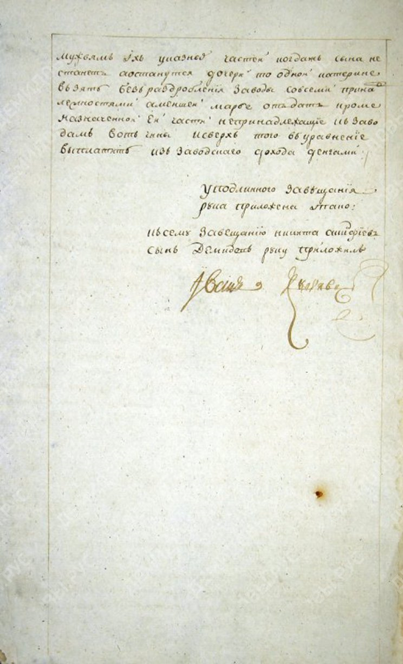 мужьям ихъ указная части когдажъ сына не
станетъ аостанутся дочери то одной катерине
взять безъ раздробления заводы совсеми прина
лежностями аменшей марье отдать кроме
назначенной ей части непринадлежащие кзаво
дамъ вотчины исверхъ того вуравнение
выплатить изъ заводскаго дохода денгами
Уподлинного завещания
рука приложена тако:
ксему завещанию никита
сынъ Демидовъ руку приложилъ